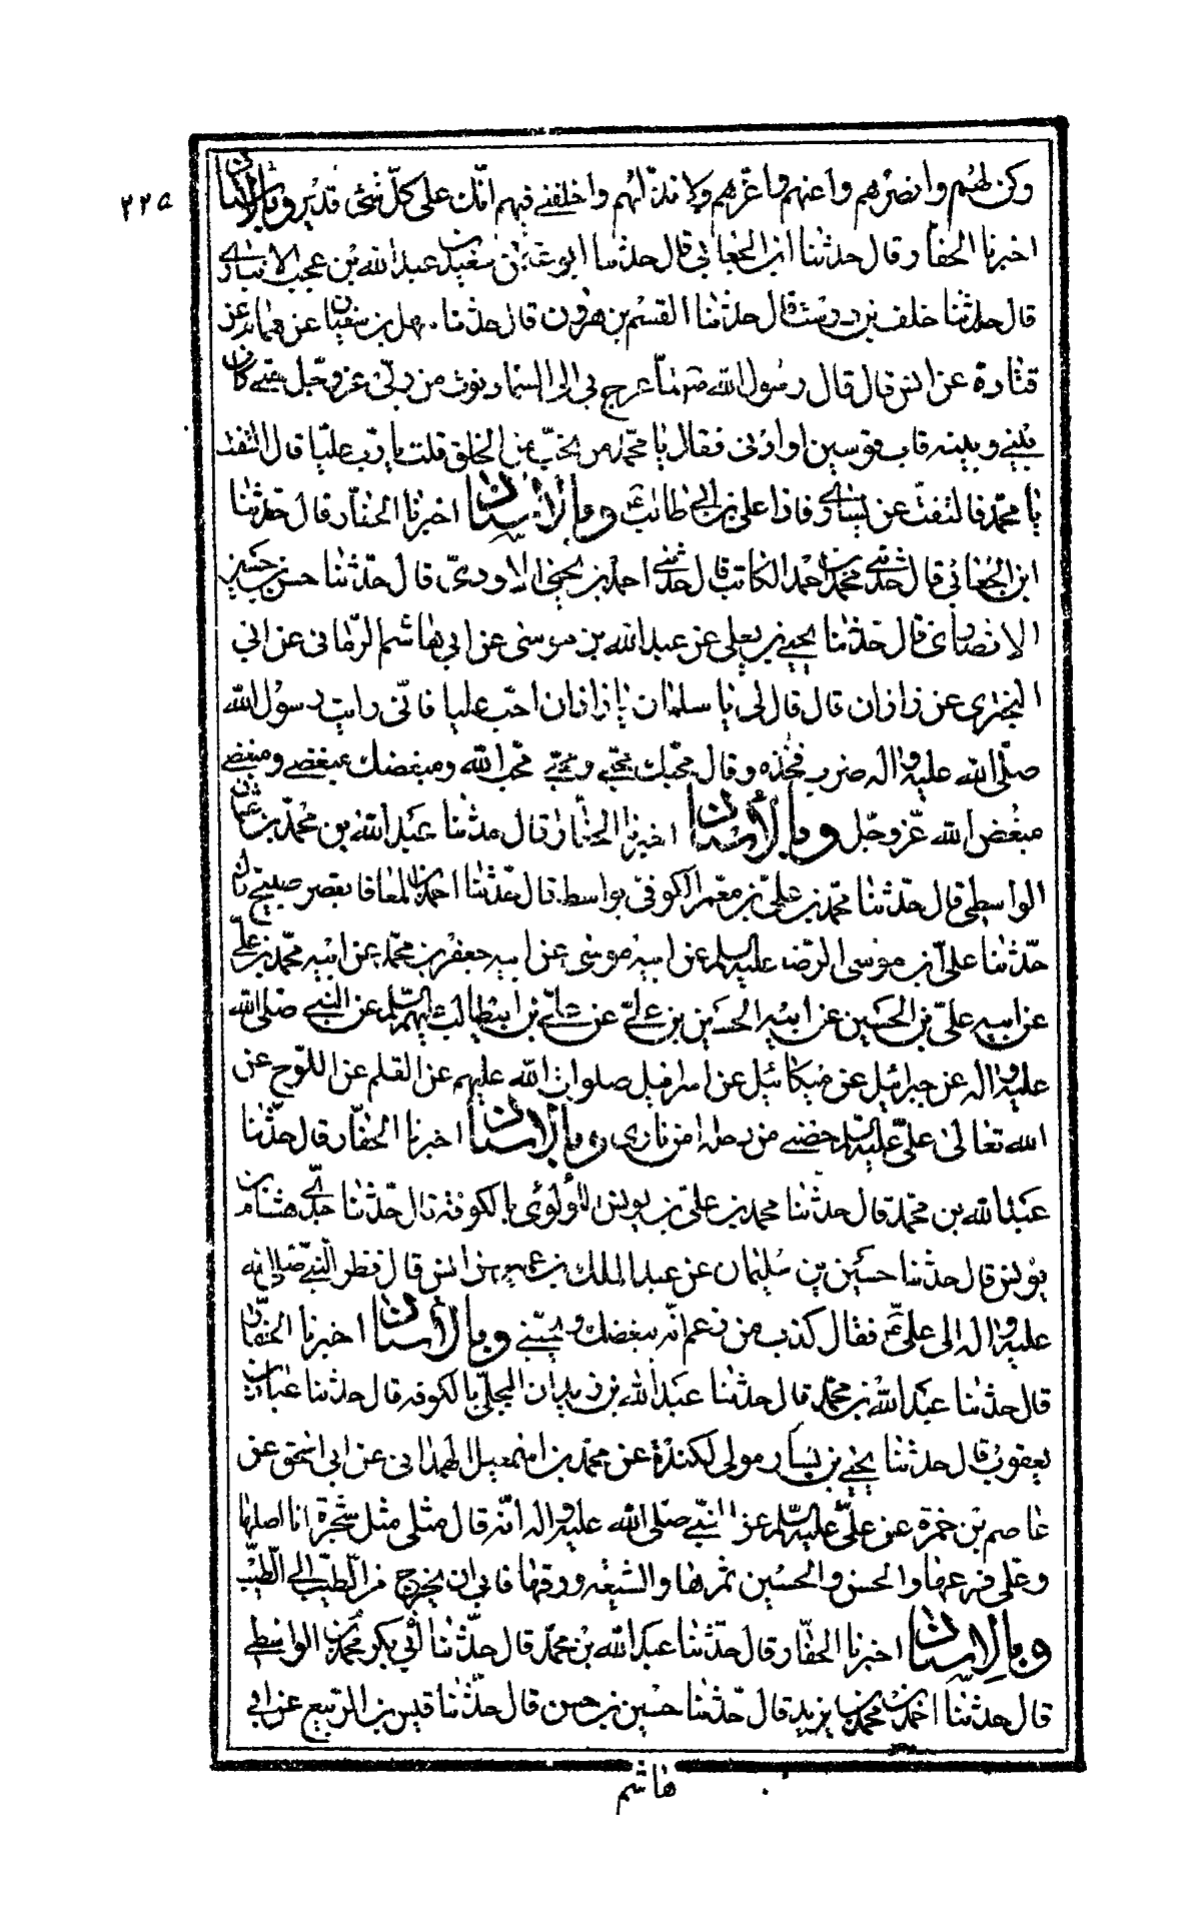 ٢٢٥
وكن لهم وانصرهم واعنهم واعزهم ولا تذلّهم واخلفنى فيهم انّك على كلّ شئ قدير وبالاسناد
اخبرنا الحفار قال حدثنا ابن الجعابى قال حدثنا ابو عثمان سعيد بن عبد الله بن عجب الانبارى
قال حدثنا خلف بن درست قال حدثنا القسم بن هرون قال حدثنا سهل بن سفيان عن همام عن
قتادة عن انس قال قال رسول الله ص لما عرج بى الى السماء دنوت من ربّى عز وجل حتى كان
بينى وبينه قاب قوسين او ادنى فقال يا محمّد من تحبّ من الخلق قلت يا ربّ عليّا قال التفت
يا محمّد فالتفتّ عن يسارى فاذا على بن ابى طالب ع وبالاسناد اخبرنا الحفّار قال حدّثنا
ابن الجعابى قال حدّثنى محمّد بن احمد الكاتب قال حدّثنى احمد بن يحيى الاودىّ قال حدّثنا حسن بن حسين
الانصارى قال حدّثنا يحيى بن يعلى عن عبد الله بن موسى عن ابى هاشم الرمّانى عن ابى
البخترى عن زاذان قال قال لى يا سلمان يا زاذان احبّ عليا فانّى رايت رسول الله
صلّى الله عليه واله ضرب فخذه وقال محبّك محبّى ومحبّى محبّ الله ومبغضك مبغضى ومبغضى
مبغض الله عزّ وجلّ وبالاسناد اخبرنا الحفّار قال حدثنا عبد الله بن محمّد بن عثمان
الواسطى قال حدّثنا محمّد بن علىّ بن معمّر الكوفىّ بواسط قال حدّثنا احمد بن المعافا بقصر صبيح قال
حدّثنا علىّ بن موسى الرّضا عليه السلم عن ابيه موسى عن ابيه جعفر بن محمّد عن ابيه محمّد بن علىّ
عن ابيه علىّ بن الحسين عن ابيه الحسين بن علىّ عن علىّ بن ابيطالب عليهم السّلم عن النبى صلّى الله
عليه واله عن جبرائيل عن ميكائيل عن اسرافيل صلوات الله عليهم عن القلم عن اللّوح عن
الله تعالى علىّ عليه السلم حصنى من دخله امن نارى وبالاسناد اخبرنا الحفّار قال حدّثنا
عبد الله بن محمّد قال حدثنا محمد بن علىّ بن يونس اللؤلؤى بالكوفة قال حدّثنا جدّى هشام بن
يونس قال حدثنا حسين بن سليمان عن عبد الملك بن عمير عن انس قال نظر النبىّ صلى الله
عليه واله الى علىّ ع فقال كذب من زعم انّه يبغضك ويحبّنى وبالاسناد اخبرنا الحفّار
قال حدثنا عبد الله بن محمّد قال حدثنا عبد الله بن زيدان البجلّى بالكوفه قال حدثنا عباد بن
يعقوب قال حدثنا يحيى بن بشار مولى لكندة عن محمّد بن اسمعيل الهمدانى عن ابى اسحق عن
عاصم بن ضمرة عن علىّ عليه السّلم عن النبّى صلّى الله عليه واله انّه قال مثلى مثل شجرة انا اصلها
وعلى فرعها والحسن والحسين ثمرها والشيعه ورقها فابى ان يخرج من الطيّب الى الطيّب
وبالاسناد اخبرنا الحفّار قال حدّثنا عبد الله بن محمّد قال حدّثنا ابى بكر محمد بن الواسطى
قال حدثنا احمد بن محمّد بن يزيد قال حدّثنا حسين بن حسن قال حدّثنا قيس بن الربيع عن ابى
هاشم